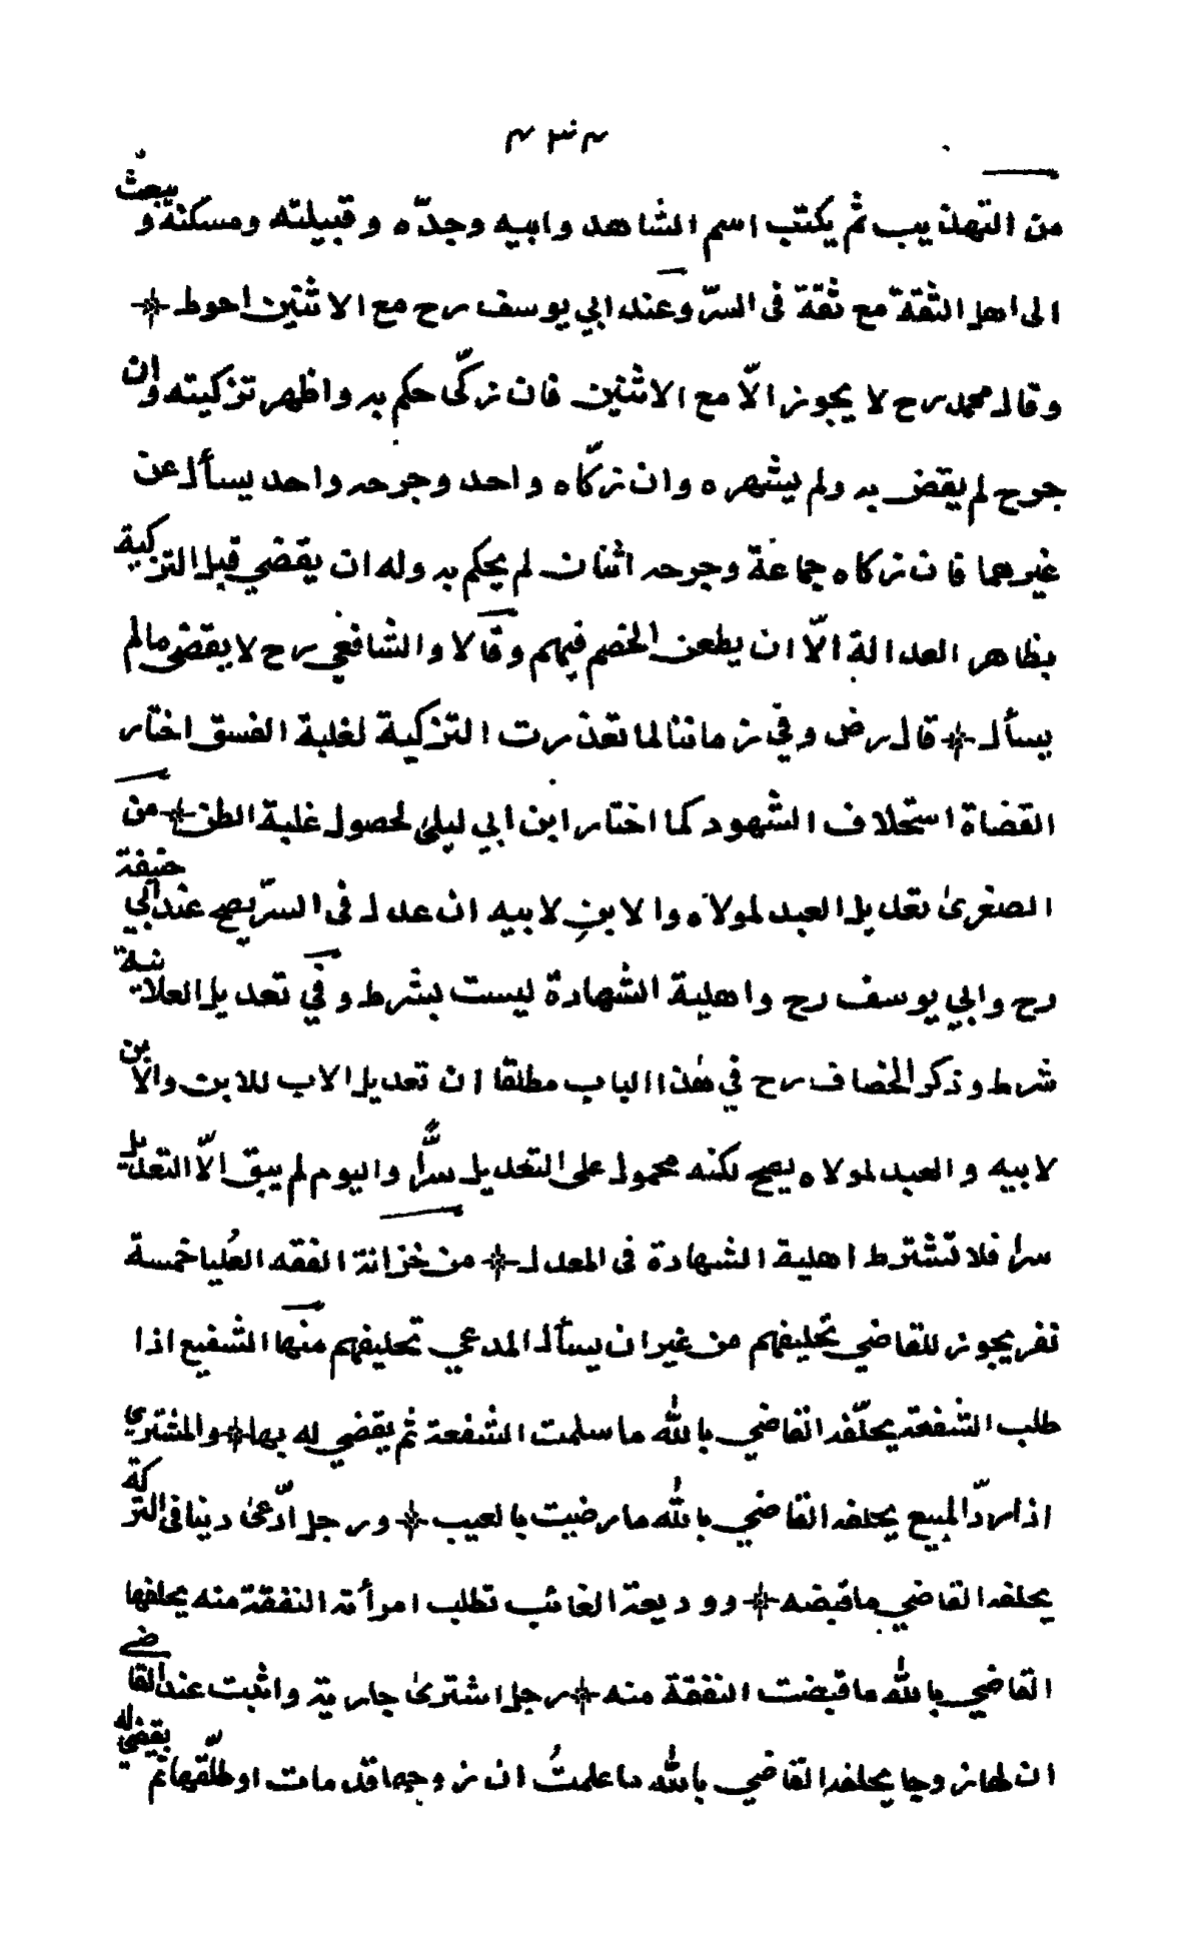 من التهذيب ثم يكتب اسم الشاهد وابيه وجدّه وقبيلته ومسكنه ويبعث
الى اهل الثقة مع ثقة فى السرّ وعند ابي يوسف رح مع الاثنين احوط
وقال محمد رح لا يجوز الّا مع الاثنين فان زكّى حكم به واظهر تزكيته وان
جرح لم يقض به ولم يشهره وان زكّاه واحد وجرحه واحد يسأل عن
غيرهما فان زكاه جماعة وجرحه اثنان لم يحكم به وله ان يقضي قبل التزكية
بظاهر العدالة الّا ان يطعن الخصم فيهم وقالا والشافعي رح لا يقضى مالم
يسأل قال رض وفي زماننا لما تعذرت التزكية لغلبة الفسق اختار
القضاة استحلاف الشهود كما اختار ابن ابي ليلى لحصول غلبة الظن من
الصغرى تعديل العبد لمولاه والابن لابيه ان عدل فى السرّ يصح عند ابي حنيفة
رح وابي يوسف رح واهلية الشهادة ليست بشرط وفي تعديل العلانية
شرط وذكر الخصاف رح في هذا الباب مطلقا ان تعديل الاب للابن والابن
لابيه والعبد لمولاه يصح لكنه محمول على التعديل سرًّا واليوم لم يبق الّا التعديل
سرا فلا تشترط اهلية الشهادة فى المعدل من خزانة الفقه العُليا خمسة
نفر يجوز للقاضي تحليفهم من غير ان يسأل المدعي تحليفهم منها الشفيع اذا
طلب الشفعة يحلّفه القاضي بالله ما سلمت الشفعة ثم يقضي له بها والمشتري
اذا ردّ المبيع يحلفه القاضي بالله ما رضيت بالعيب ورجل ادّعى دينا فى التركة
يحلفه القاضي ما قبضه ووديعة الغائب تطلب امرأته النفقة منه يحلفها
القاضي بالله ما قبضت النفقة منه رجل اشترى جارية واثبت عند القاضي
ان لها زوجا يحلفه القاضي بالله ما علمتُ ان زوجها قد مات او طلّقها ثم يقضي له